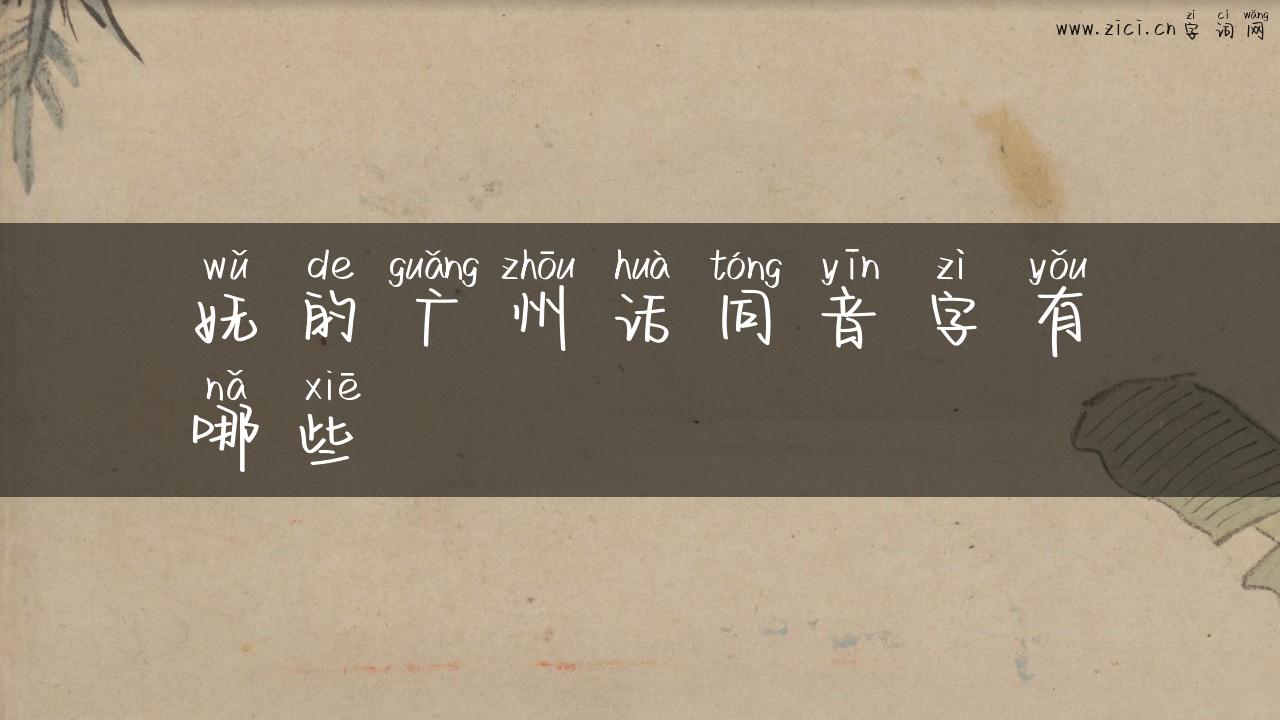 zì cí wǎng
www.zici.cn字词网
wǔ de guǎng zhōu huà tóng yīn zì yǒu
妩的广州话同音字有
nǎ xiē
哪些